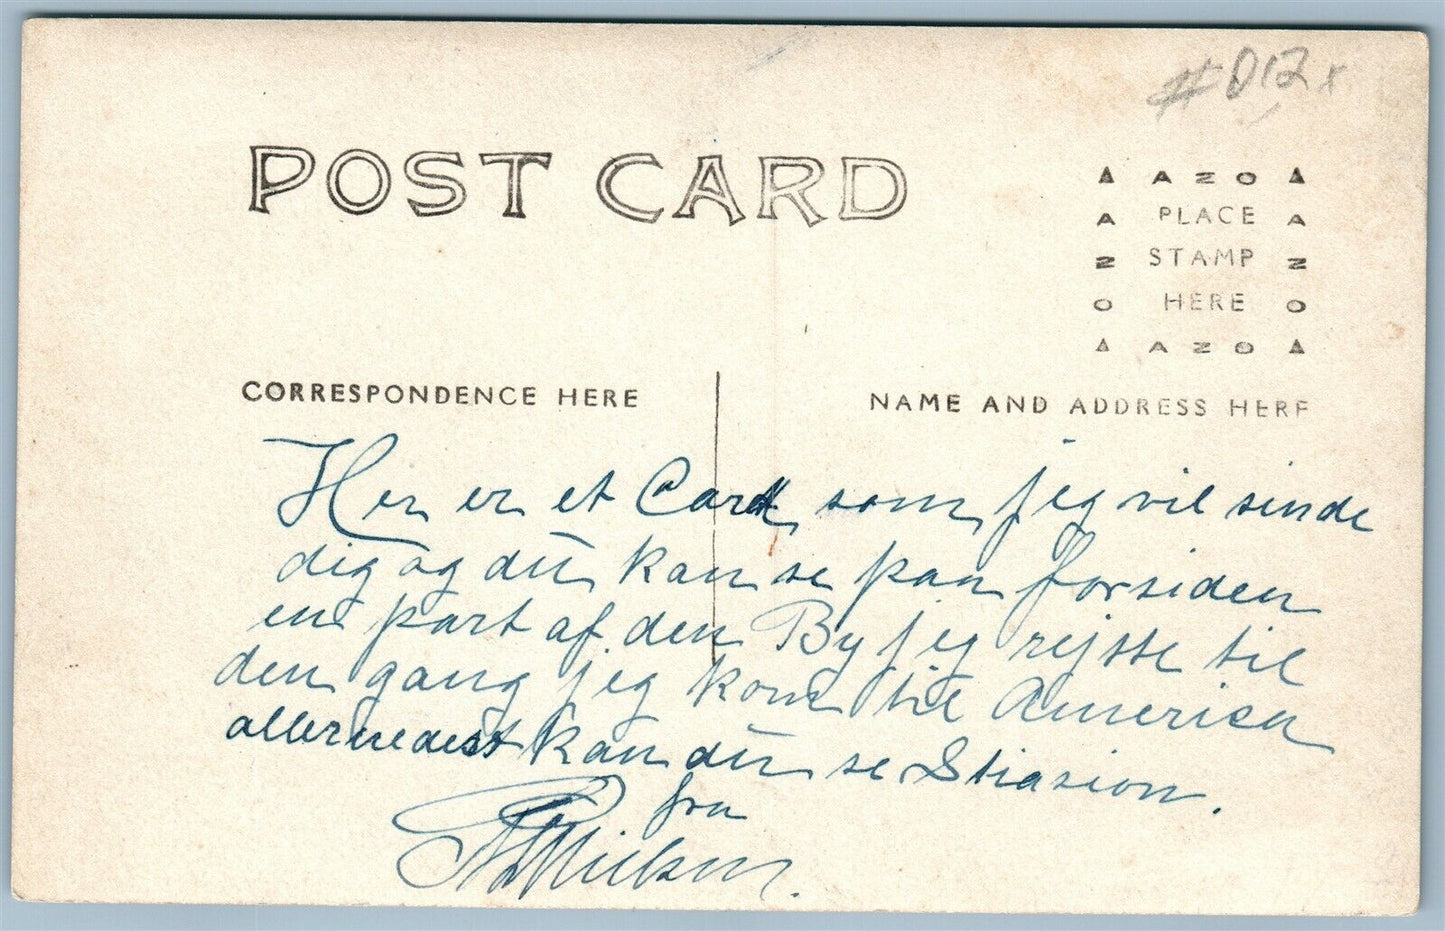 #D12x
POST CARD
AZO
PLACE
STAMP
HERE
AZO
AZO
AZO
CORRESPONDENCE HERE
NAME AND ADDRESS HERE
Her er et Card som jeg vil sende
dig og dū kan se paa forsiden
en part af den By jeg rejste til
den gang jeg kom til America
allernedest kan dū se Stasion.
fra
Nielsen.